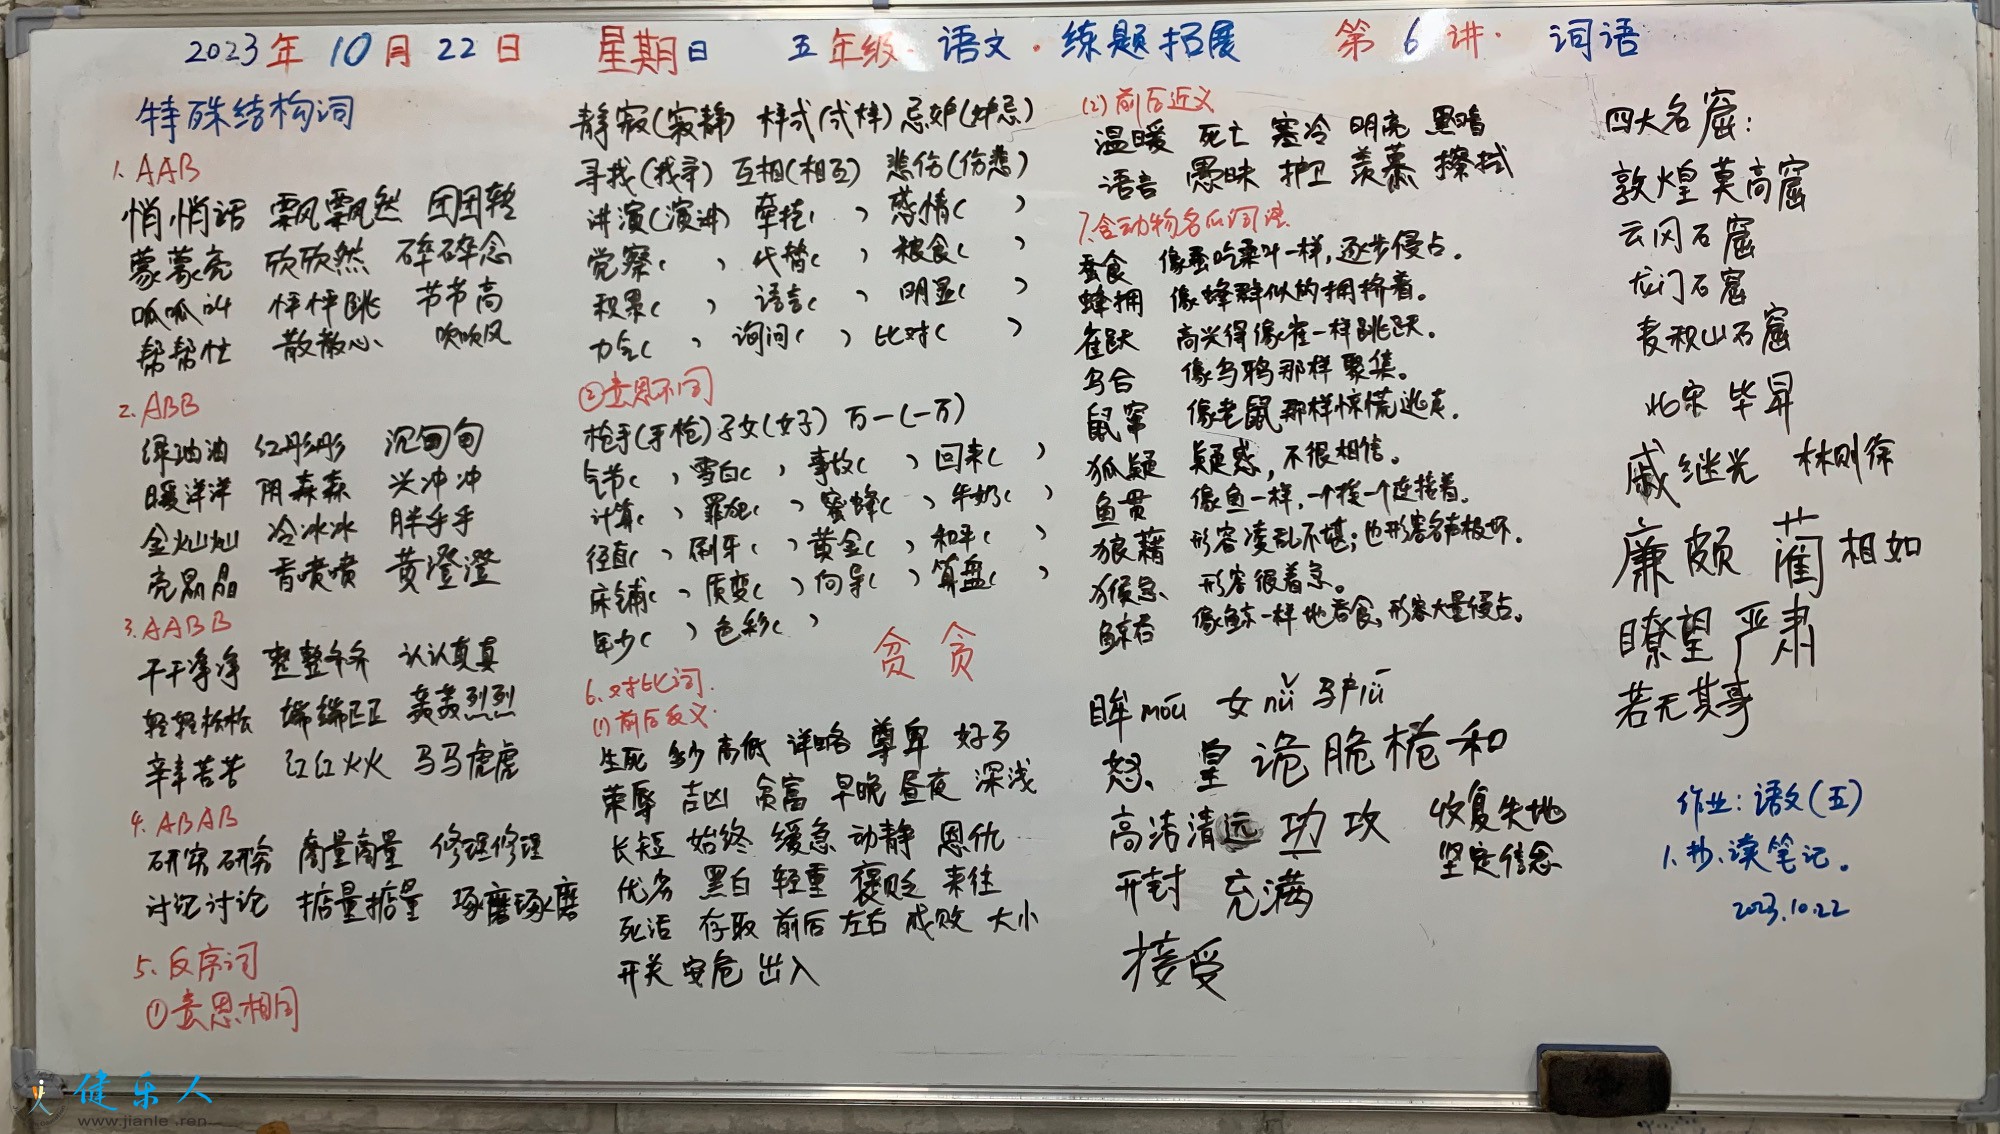 2023年10月22日 星期日 五年级·语文·练题拓展 第6讲· 词语
特殊结构词
1. AAB
悄悄话 飘飘然 团团转
蒙蒙亮 欣欣然 碎碎念
呱呱叫 怦怦跳 节节高
帮帮忙 散散心 吹吹风
2. ABB
绿油油 红彤彤 沉甸甸
暖洋洋 阴森森 兴冲冲
金灿灿 冷冰冰 胖乎乎
亮晶晶 香喷喷 黄澄澄
3. AABB
干干净净 整整齐齐 认认真真
轻轻松松 端端正正 轰轰烈烈
辛辛苦苦 红红火火 马马虎虎
4. ABAB
研究研究 商量商量 修理修理
讨论讨论 掂量掂量 琢磨琢磨
5. 反序词
①意思相同
静寂(寂静) 样式(式样) 忌妒(妒忌)
寻找(找寻) 互相(相互) 悲伤(伤悲)
讲演(演讲) 牵挂( ) 感情( )
觉察( ) 代替( ) 粮食( )
积累( ) 语言( ) 明显( )
力气( ) 询问( ) 比对( )
②意思不同
枪手(手枪) 子女(女子) 万一(一万)
气节( ) 雪白( ) 事故( ) 回来( )
计算( ) 罪犯( ) 蜜蜂( ) 牛奶( )
径直( ) 刷牙( ) 黄金( ) 和平( )
床铺( ) 质变( ) 向导( ) 算盘( )
年少( ) 色彩( )
贪 贫
6. 对比词.
(1)前后反义.
生死 多少 高低 详略 尊卑 好歹
荣辱 吉凶 贫富 早晚 昼夜 深浅
长短 始终 缓急 动静 恩仇
优劣 黑白 轻重 褒贬 来往
死活 存取 前后 左右 成败 大小
开关 安危 出入
(2)前后近义
温暖 死亡 寒冷 明亮 黑暗
语言 愚昧 护卫 羡慕 擦拭
7.含动物名的词语.
蚕食 像蚕吃桑叶一样,逐步侵占。
蜂拥 像蜂群似的拥挤着。
雀跃 高兴得像雀一样跳跃。
乌合 像乌鸦那样聚集。
鼠窜 像老鼠那样惊慌逃走.
狐疑 疑惑,不很相信。
鱼贯 像鱼一样,一个接一个连接着.
狼藉 形容凌乱不堪;也形容名声极坏.
猴急 形容很着急。
鲸吞 像鲸一样地吞食,形容大量侵占。
眸 móu 女 nǚ 驴 lǘ
怒 皇 诡脆桅 和
高洁清远 功 攻 收复失地
坚定信念
开封 充满
接受
四大名窟:
敦煌莫高窟
云冈石窟
龙门石窟
麦积山石窟
北宋 毕昇
戚继光 林则徐
廉颇 蔺相如
瞭望 严肃
若无其事
作业:语文(五)
1.抄、读笔记。
2023.10.22
健乐人
www.jianle.ren